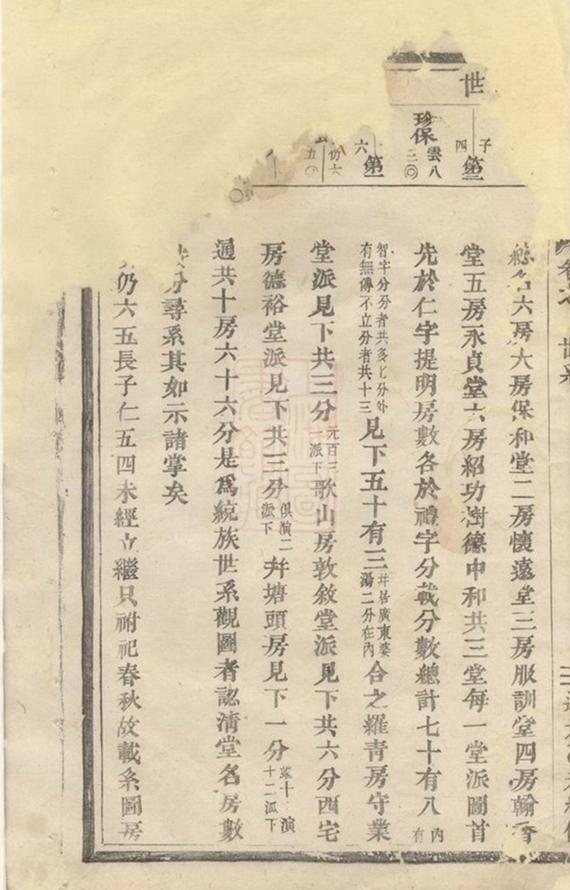 世
子
四
第二
珍保
雲八
三
六
第一
八
仍六
五
六房大房保和堂二房懷遠堂三房服訓堂四房翰香
堂五房永貞堂六房紹功樹德中和共三堂每一堂派圖首
先於仁字提明房數各於禮字分載分數總計七十有八內有
智字分分者共多七分外有無傳不立分者共十三見下五十有三井居廣東婺湯二分在內合之羅青房守業
堂派見下共三分元百三派下歌山房敦敘堂派見下共六分西宅
房德裕堂派見下共三分俱演二派下并塘頭房見下一分演十二派下
通共十房六十六分是爲統族世系觀圖者認清堂名房數
分尋系其如示諸掌矣
仍六五長子仁五四未經立繼只祔祀春秋故載系圖房